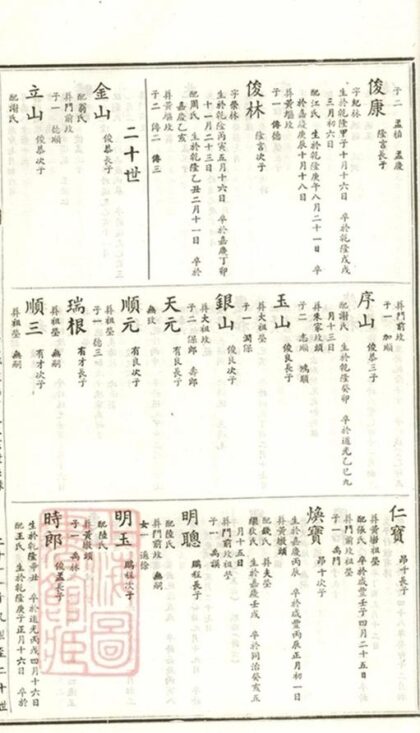 子二 孟植 孟慶
俊康 陰言長子
字妃林
生於乾隆甲子十月十六日 卒於乾隆戊戌
三月初六日
配江氏 生於乾隆庚午八月二十一日 卒
於嘉慶庚辰十月十八日
葬黃墩坟
子一 傳德
俊林 陰言次子
字榮林
生於乾隆丙寅五月十六日 卒於嘉慶丁卯
十一月二十三日
配周氏 生於乾隆乙丑二月十一日 卒於
嘉慶乙亥
葬黃墩坟
子二 傳二 傳三
二十世
金山 俊恭長子
配翁氏
葬門前坟
子一 德順
立山 俊恭次子
配謝氏
葬門前坟
子一 加順
序山 俊恭三子
配謝氏 生於乾隆癸卯 卒於道光乙巳九
月十三日
葬朱家坟頭
子二 志順 鴻順
玉山 俊良長子
葬大祖塋
子一 潤保
銀山 俊良次子
葬大祖塋
子二 保郎 壽郎
天元 有良長子
無坟
順元 有良次子
葬祖塋
子一 德三
瑞根 有才長子
葬祖塋 無嗣
順三 有才次子
葬祖塋 無嗣
仁寶 昂十長子
葬黃墩祖塋
配張氏 卒於咸豐壬子四月二十五日
葬門前坟祖塋
子一 禹門
煥寶 昂十次子
生於嘉慶丙辰 卒於咸豐丙辰正月初一日
葬黃墩頭
配錢氏 葬夫塋
繼耿氏 生於嘉慶壬戌 卒於同治癸亥五
月十五日
葬門前坟祖塋
子一 禹謨
明聰 鵬程長子
配陸氏
葬門前坟 無嗣
女一 適徐
明玉 鵬程次子
配陸氏
葬黃墩頭
子一 禹林
時郎 俊孟長子
生於乾隆辛丑 卒於道光丙戌四月十六日
配王氏 生於乾隆庚子正月十六日 卒於